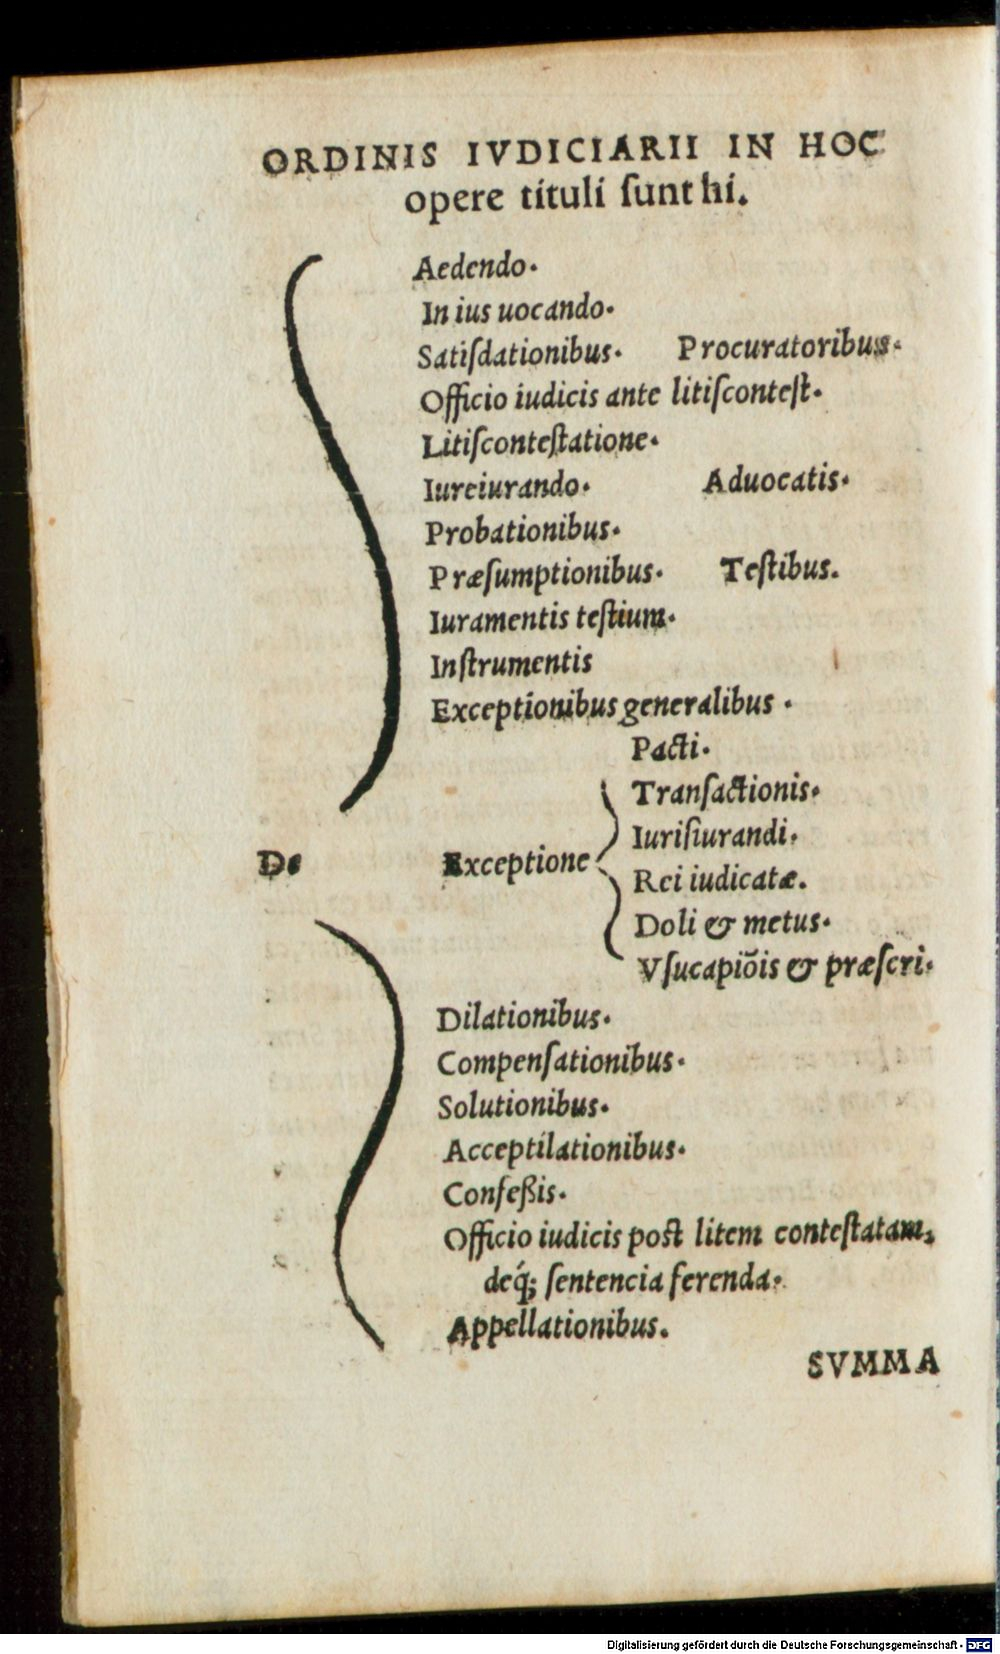 ORDINIS IVDICIARII IN HOC
opere tituli ſunt hi.
Aedendo.
In ius uocando.
Satiſdationibus. Procuratoribus.
Officio iudicis ante litiſconteſt.
Litiſconteſtatione.
Iureiurando. Aduocatis.
Probationibus.
Præſumptionibus. Teſtibus.
Iuramentis teſtium.
Inſtrumentis
Exceptionibus generalibus.
Pacti.
Tranſactionis.
Iuriſiurandi.
De Exceptione
Rei iudicatæ.
Doli & metus.
Vſucapiōis & præſcri.
Dilationibus.
Compenſationibus.
Solutionibus.
Acceptilationibus.
Confeßis.
Officio iudicis poſt litem conteſtatam,
deq́; ſentencia ferenda.
Appellationibus.
SVMMA
Digitalisierung gefördert durch die Deutsche Forschungsgemeinschaft - DFG